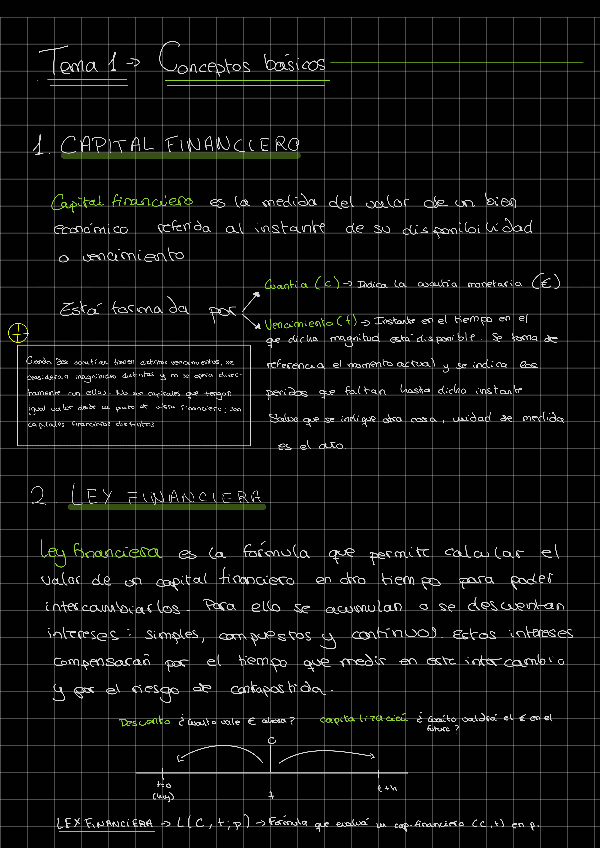 Tema 1 → Conceptos básicos
1. CAPITAL FINANCIERO
Capital financiero es la medida del valor de un bien
económico referida al instante de su disponibilidad
o vencimiento
Está formada por
Cuantía (C) → Indica la cuantía monetaria (€)
Vencimiento (t) → Instante en el tiempo en el
que dicha magnitud está disponible. Se toma de
referencia el momento actual y se indica los
periodos que faltan hasta dicho instante
Salvo que se indique otra cosa, unidad de medida
es el año.
Cuando dos cuantías tienen distintos vencimientos, se
consideran magnitudes distintas y no se opera direc-
tamente con ellas. No son capitales que tengan
igual valor desde un punto de vista financiero; son
capitales financieros distintos
2. LEY FINANCIERA
Ley financiera es la fórmula que permite calcular el
valor de un capital financiero en otro tiempo para poder
intercambiarlos. Para ello se acumulan o se descuentan
intereses: simples, compuestos y continuos. Estos intereses
compensarán por el tiempo que medir en este intercambio
y por el riesgo de contrapartida.
Descuento ¿Cuánto vale € ahora?
Capitalización ¿Cuánto valdrá el € en el
futuro?
C
t=0
(hoy)
t
t+n
LEY FINANCIERA → L(C, t; p) → Fórmula que evalúa un cap. financiero (C, t) en p.